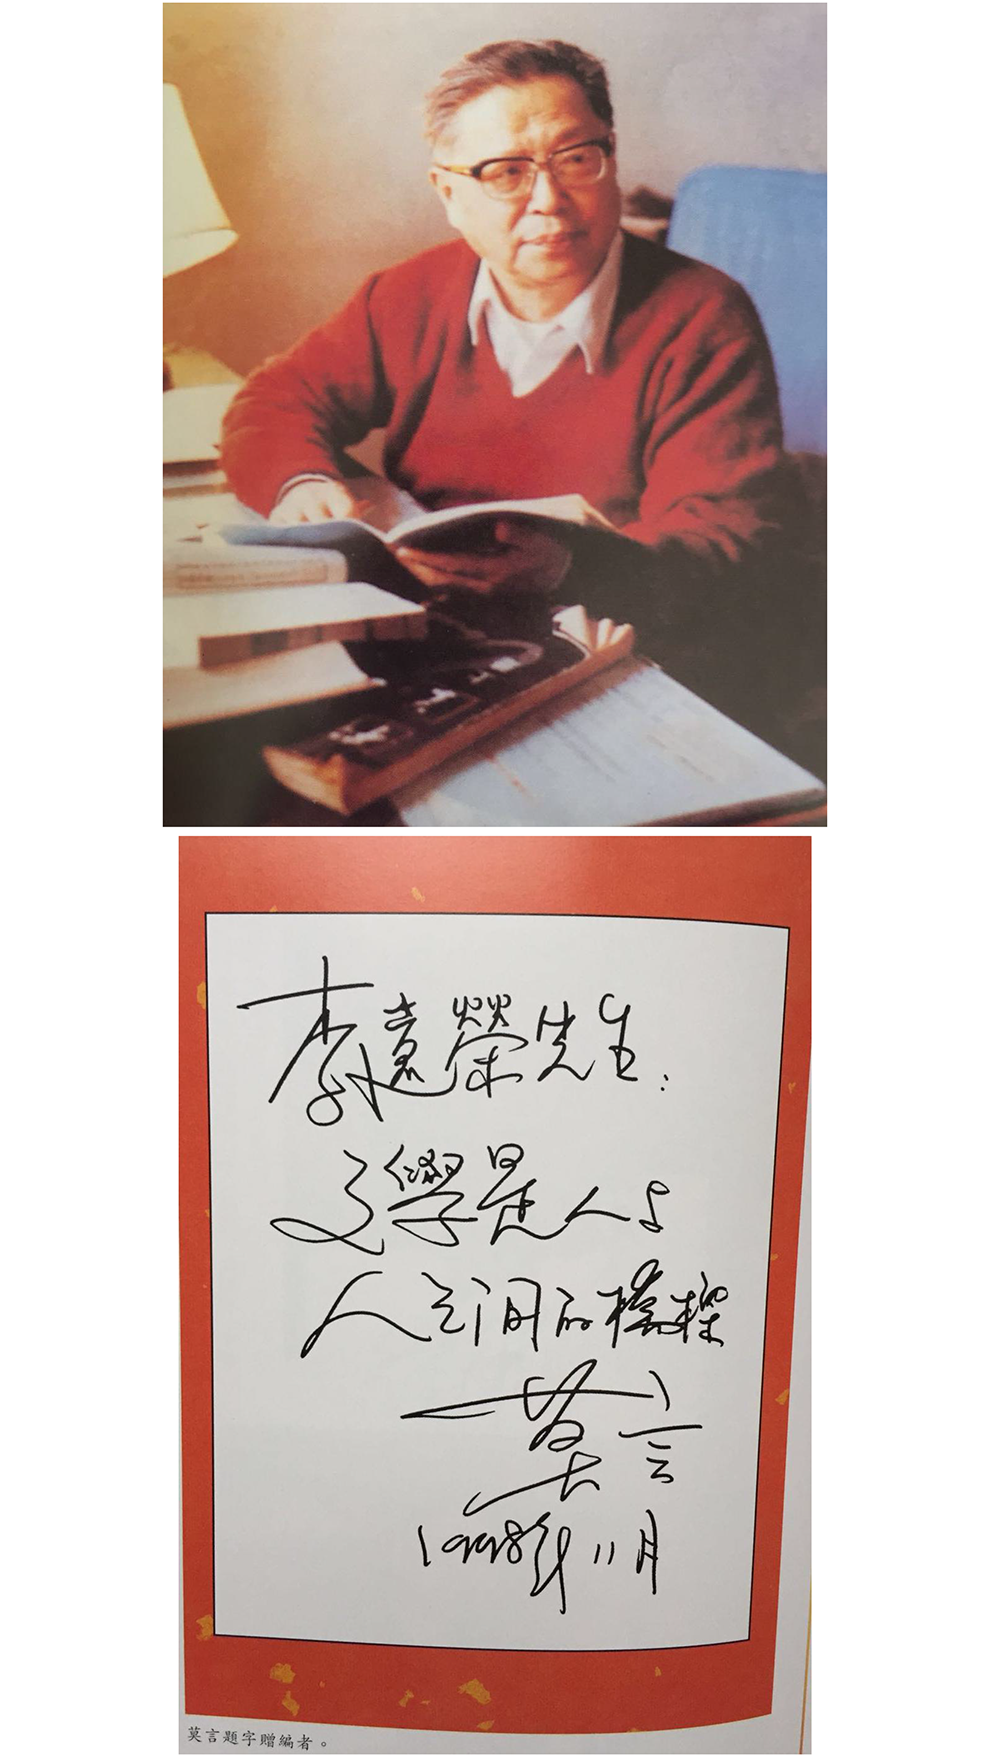 李遠榮先生：
文學是人与
人之间的橋樑
莫言
1998年11月
莫言題字贈編者。